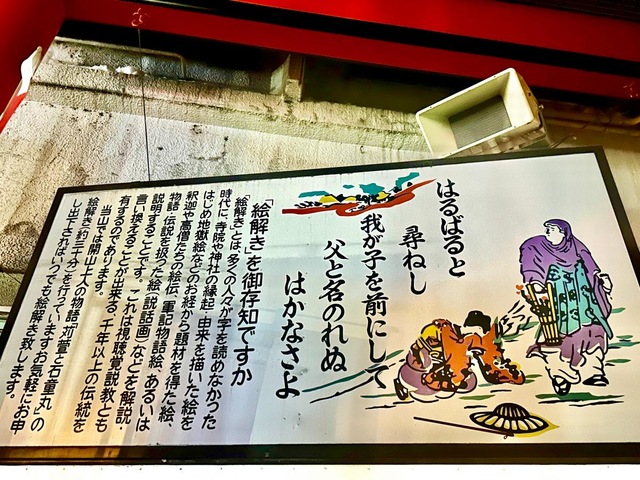 はるばると
尋ねし
我が子を前にして
父と名のれぬ
はかなさよ
「絵解き」を御存知ですか
「絵解き」とは、多くの人々が字を読めなかった
時代に、寺院や神社の縁起・由来を描いた絵を
はじめ地獄絵などのお経から題材を得た絵、
釈迦や高僧たちの絵伝、軍記物語絵、あるいは
物語・伝説を扱った絵(説話画)などを解説・
説明することです。これは視聴覚説教とも
言い換えることが出来る、千年以上の伝統を
有するのであります。
当山では開山上人の物語「苅萱と石童丸」の
絵解き(約三十分)を行っていますお気軽にお申
し出下さればいつでも絵解き致します。